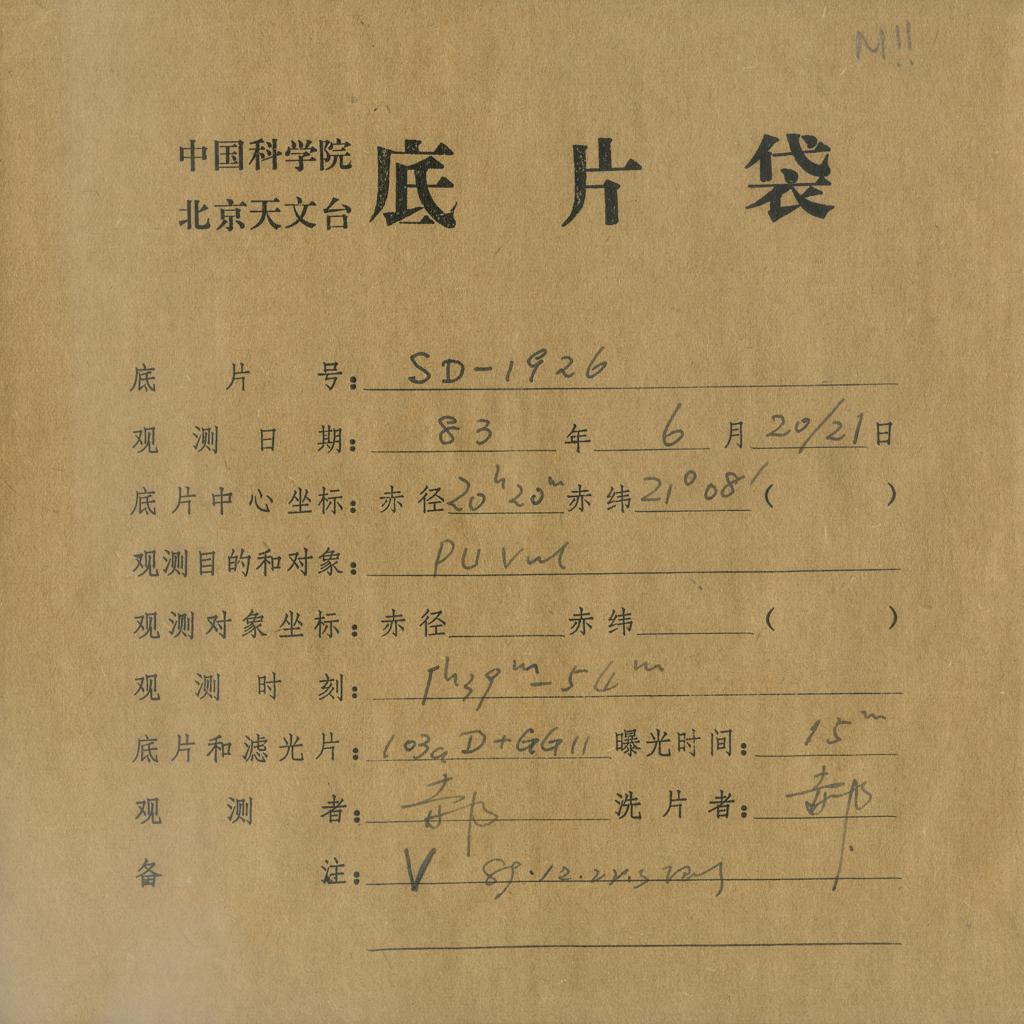 M!!
中国科学院
北京天文台
底片袋
底片号：SD-1926
观测日期：83年6月20/21日
底片中心坐标：赤径20ʰ20ᵐ赤纬21°08′（ ）
观测目的和对象：PU Vul
观测对象坐标：赤径 赤纬 （ ）
观测时刻：1ʰ39ᵐ-54ᵐ
底片和滤光片：103aD+GG11 曝光时间：15ᵐ
观测者： 洗片者：
备注：V 89.12.22.